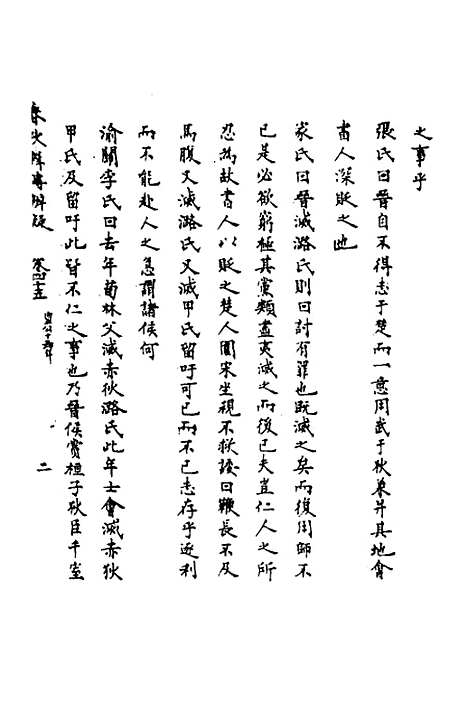 之事乎
張氏曰晉自不得志于楚而一意用武于狄兼并其地會
書人深貶之也
家氏曰晉滅潞氏則曰討有罪也既滅之矣而復用師不
已是必欲窮極其黨類盡夷滅之而後已夫豈仁人之所
忍為故書人以貶之楚人圍宋坐視不救諉曰鞭長不及
馬腹又滅潞氏又滅甲氏留吁可已而不已志存乎逐利
而不能赴人之急謂諸侯何
渝關李氏曰去年荀林父滅赤狄潞氏此年士會滅赤狄
甲氏及留吁此皆不仁之事也乃晉侯賞桓子狄臣千室
春秋辨疑 卷四十五 二